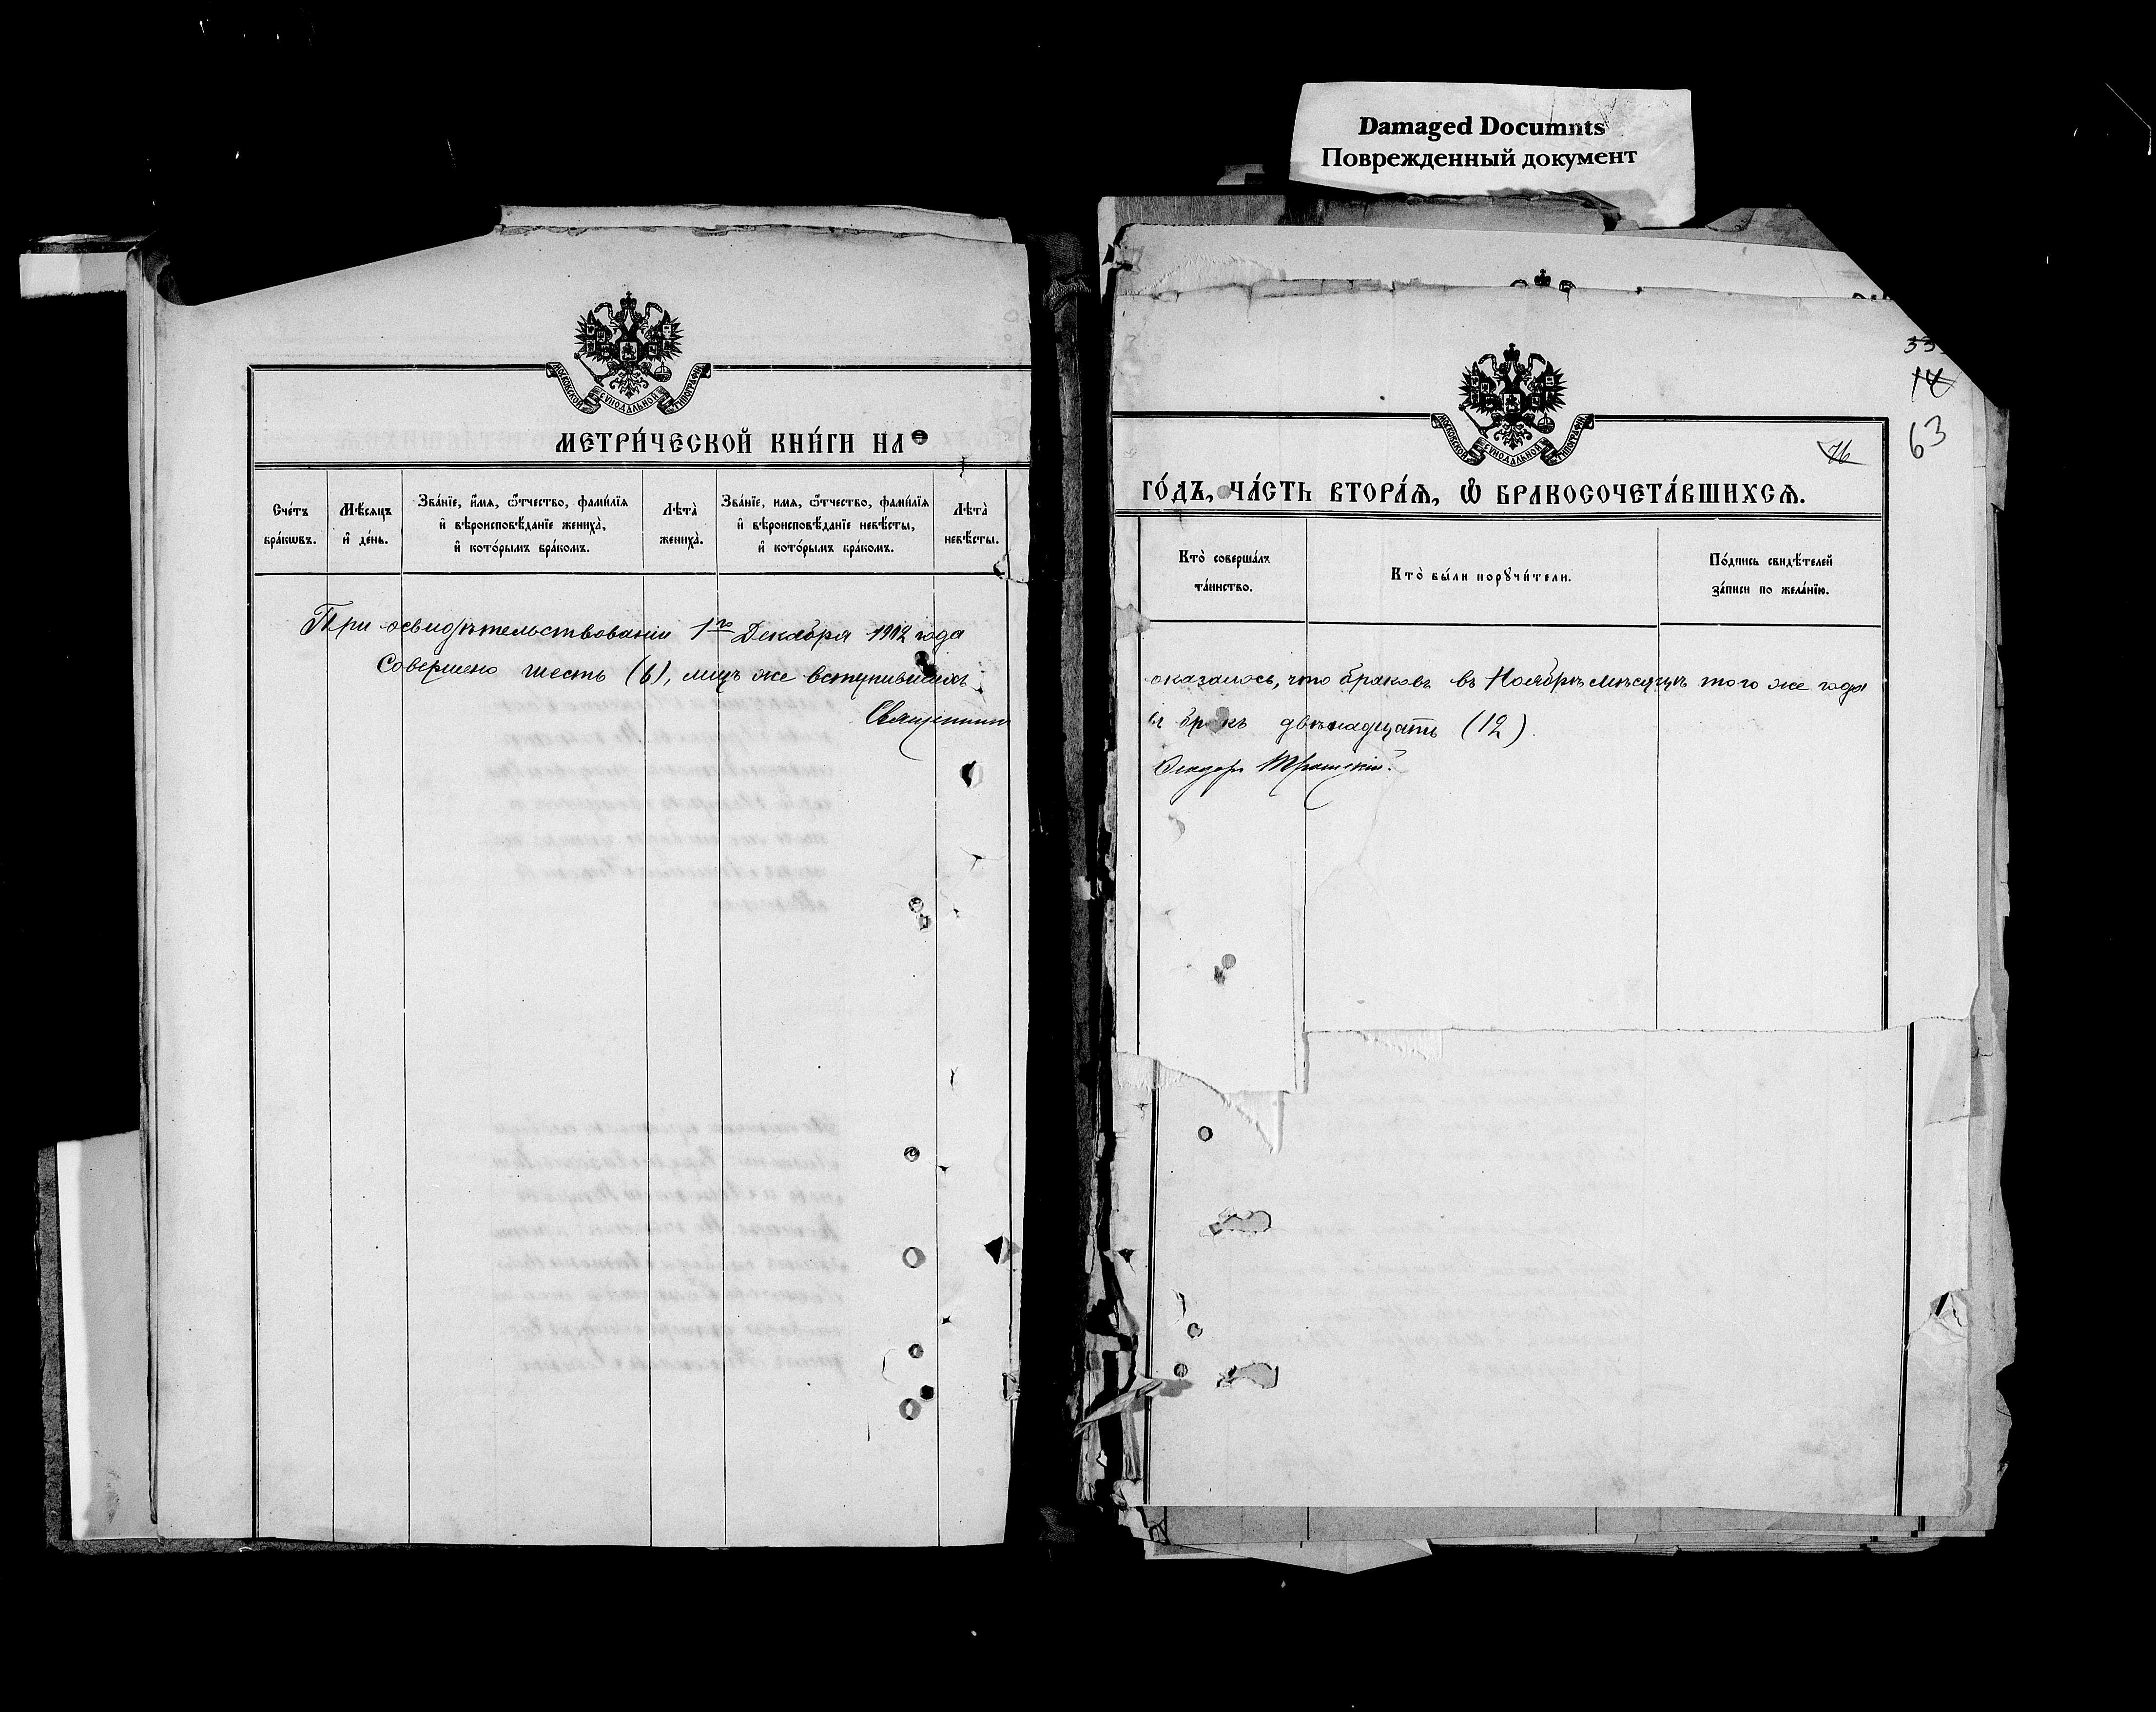 Damaged Documnts
Поврежденный документ
МОСКОВСКОЙ СѴНОДАЛЬНОЙ ТИПОГРАФІИ
МЕТРИ́ЧЕСКОЙ КНИ́ГИ НА
Сче́тъ бра́кωвъ.
Мѣ́сяцъ и҆ де́нь.
Зва́нїе, и҆́мя, ѻ҆́тчество, фами́лїя и҆ вѣроисповѣ́данїе жениха̀, и҆ кото́рымъ бра́комъ.
Лѣ́та̀ жениха̀.
Зва́нїе, имя, ѻ҆́тчество, фами́лїя и҆ вѣроисповѣ́данїе невѣ́сты, и҆ кото́рымъ бра́комъ.
Лѣ́та̀ невѣ́сты.
При освидѣтельствованіи 1го Декабря 1912 года
совершено шесть (6), лицъ же вступившихъ
Священник
МОСКОВСКОЙ СѴНОДАЛЬНОЙ ТИПОГРАФІИ
33
14
63
76
ГО́ДЪ, ЧА́СТЬ ВТОРА́Я, Ѡ҆ БРАКОСОЧЕТА́ВШИХСЯ.
Кто̀ соверша́лъ та́инство.
Кто̀ бы́ли порꙋчи́тели.
По́дпись свидѣ́телей за́писи по жела́нїю.
оказалось, что браковъ въ Ноябрѣ мѣсяцѣ того же года
въ бракъ двѣнадцать (12).
Ѳеодоръ